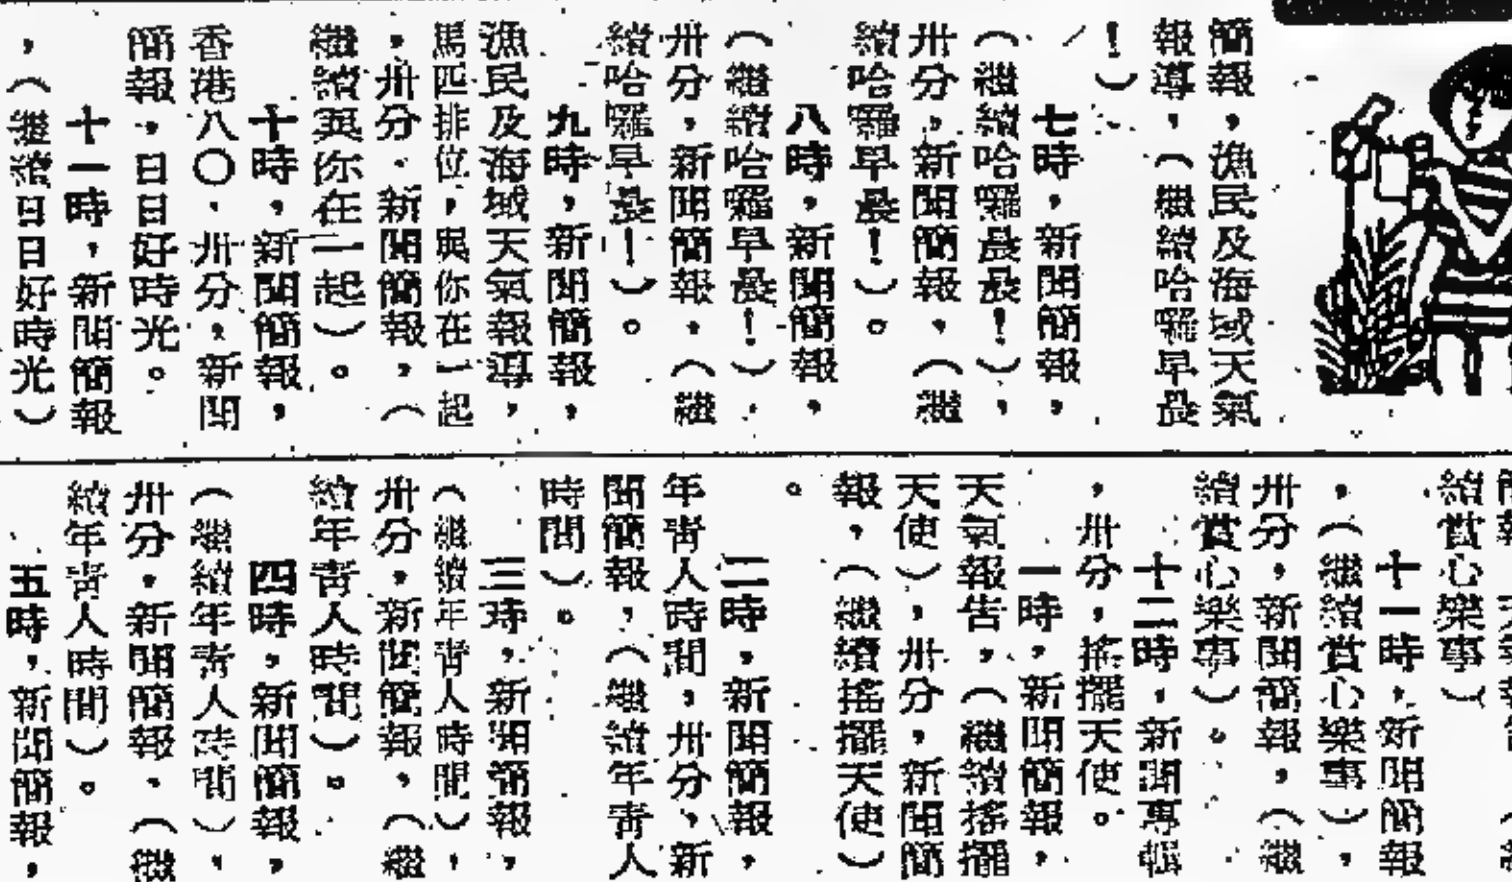 簡報，漁民及海域天氣
報導，（繼續哈囉早晨
！）
七時，新聞簡報，
（繼續哈囉晨晨！），
卅分，新聞簡報，（繼
續哈囉早晨！）。
八時，新聞簡報，
（繼續哈囉早晨！），
卅分，新聞簡報，（繼
續哈囉早晨！）。
九時，新聞簡報，
漁民及海域天氣報導，
馬匹排位，與你在一起
，卅分，新聞簡報，（
繼續與你在一起）。
十時，新聞簡報，
香港八〇，卅分，新聞
簡報，日日好時光。
十一時，新聞簡報
，（繼續日日好時光）
續賞心樂事）
十一時，新聞簡報
，（繼續賞心樂事），
卅分，新聞簡報，（繼
續賞心樂事）。
十二時，新聞專輯
，卅分，搖擺天使。
一時，新聞簡報，
天氣報告，（繼續搖擺
天使），卅分，新聞簡
報，（繼續搖擺天使）
。
二時，新聞簡報，
年青人時間，卅分，新
聞簡報，（繼續年青人
時間）。
三時，新聞簡報，
（繼續年青人時間），
卅分，新聞簡報，（繼
續年青人時間）。
四時，新聞簡報，
（繼續年青人時間），
卅分，新聞簡報，（繼
續年青人時間）。
五時，新聞簡報，